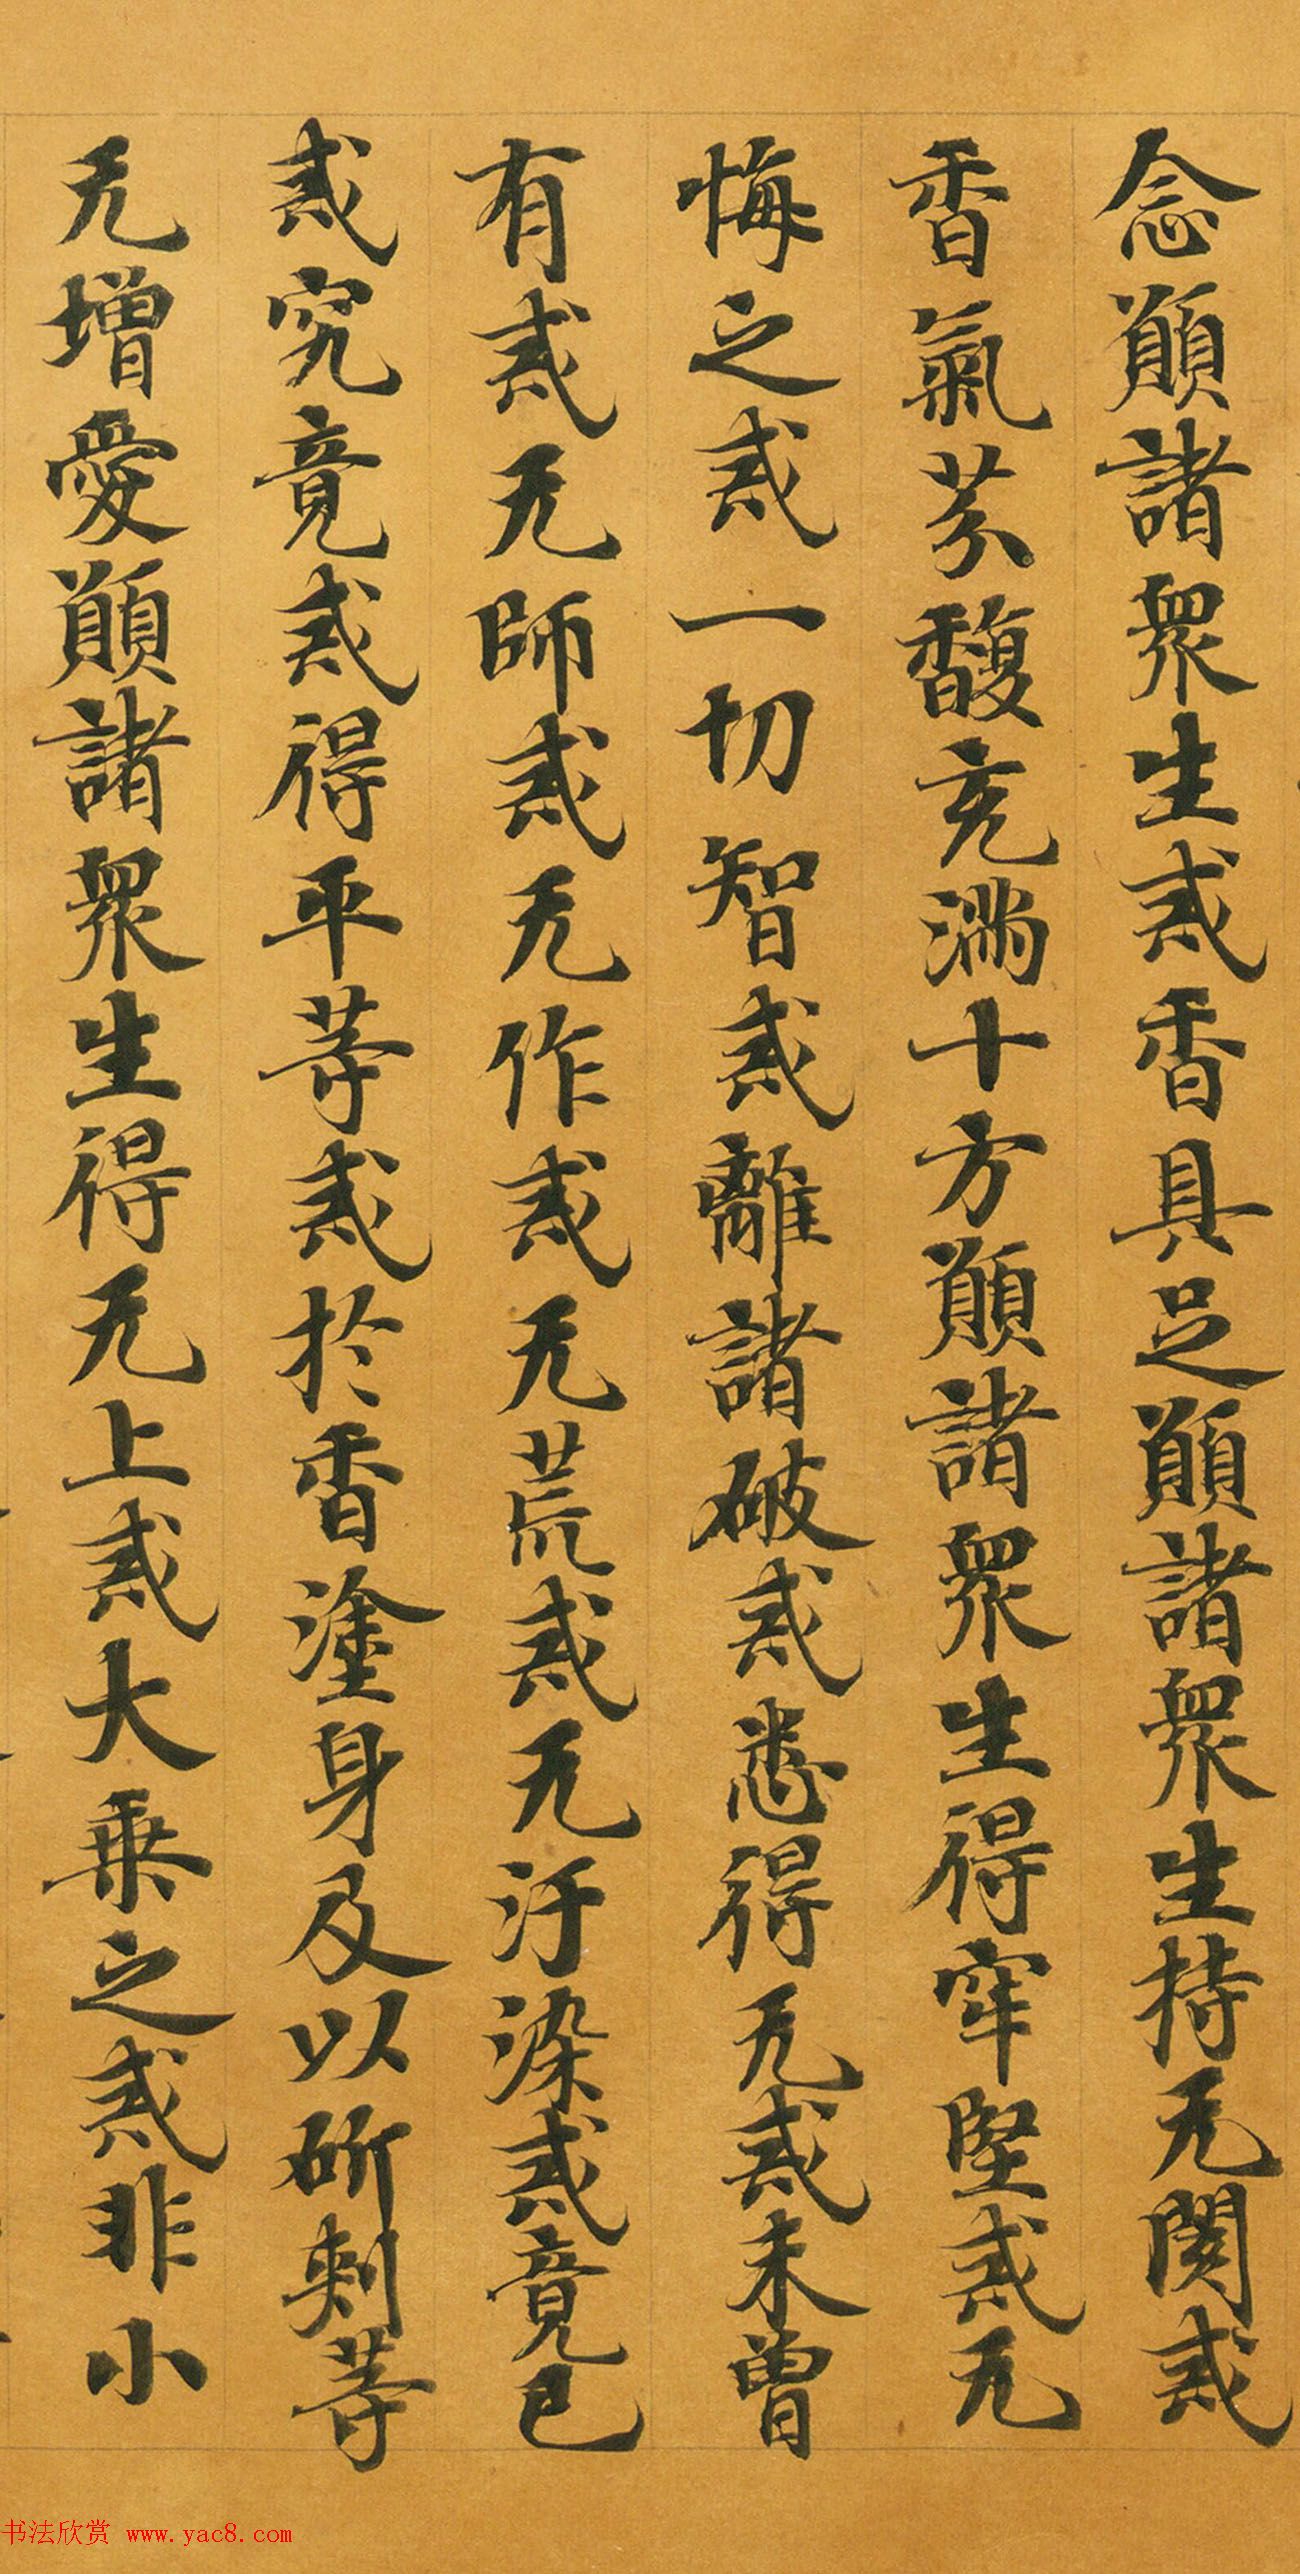 念願諸衆生戒香具足願諸衆生持无闕戒
香氣芬馥充滿十方願諸衆生得牢堅戒无
悔之戒一切智戒離諸破戒悉得无戒未曾
有戒无師戒无作戒无荒戒无汙染戒竟已
戒究竟戒得平等戒於香塗身及以斫刺等
无增愛願諸衆生得无上戒大乘之戒非小
书法欣赏 www.yac8.com